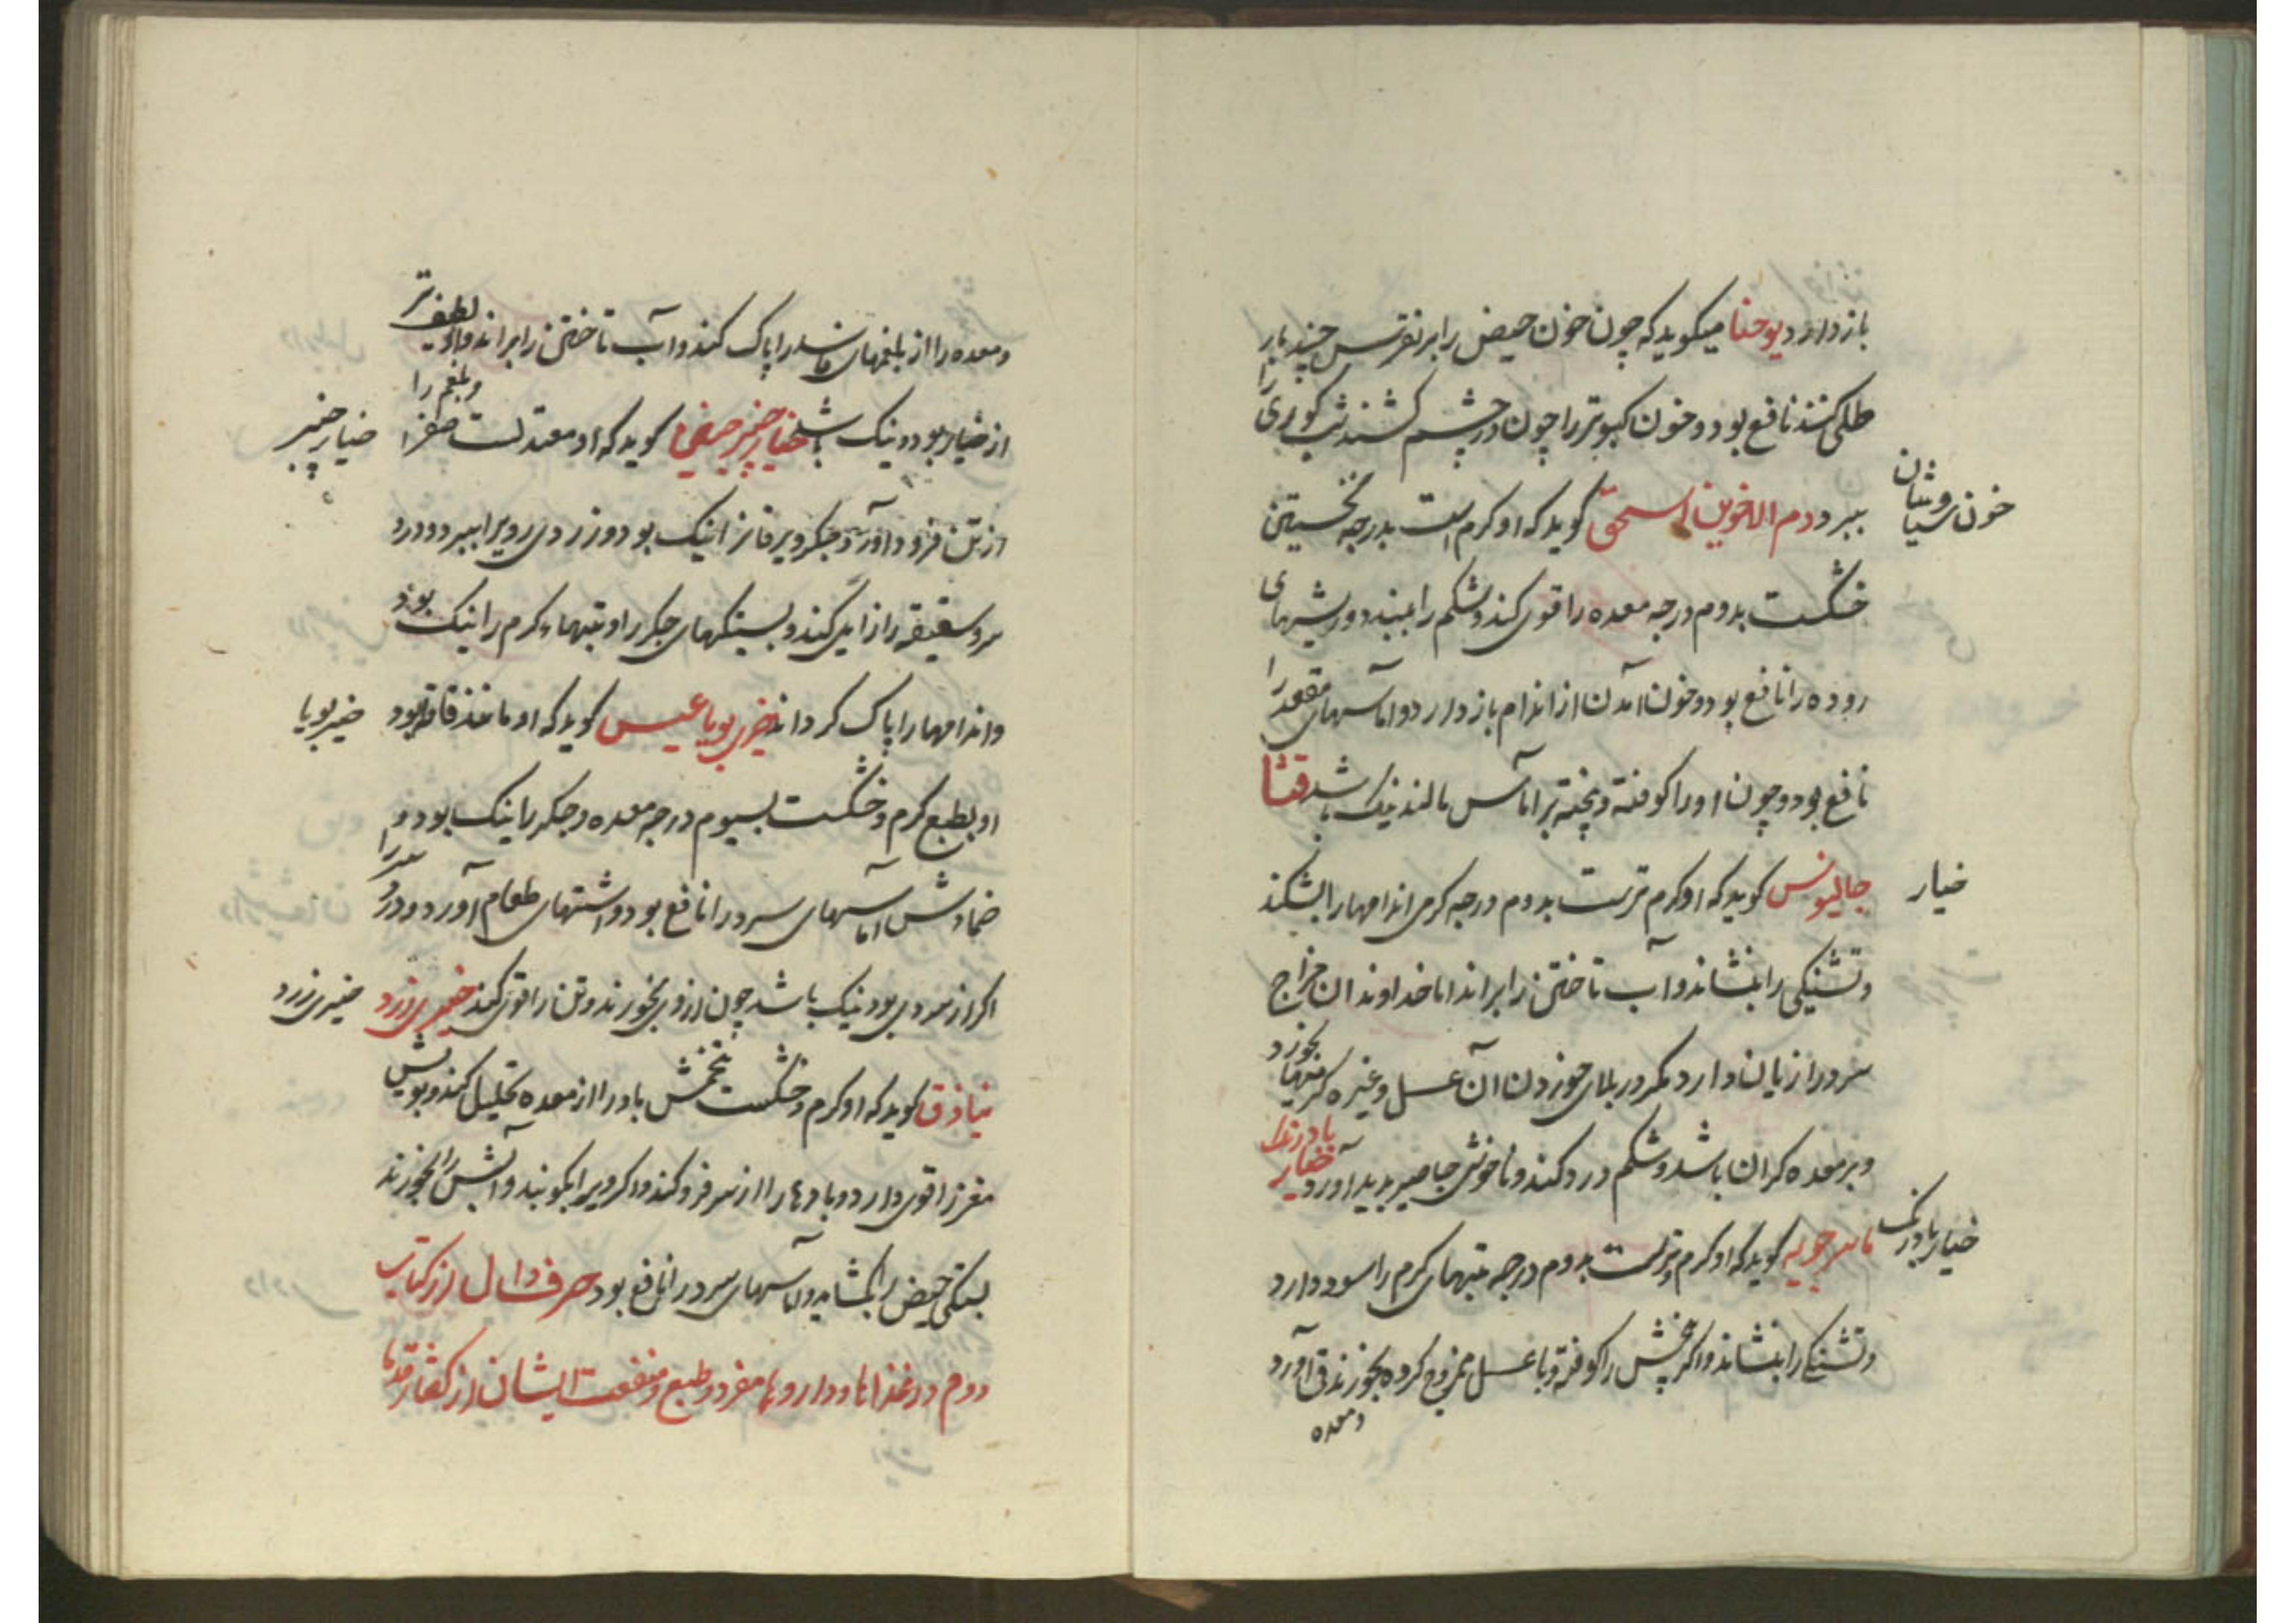 باز دارد یوحنا میکوید که چون خون حیض را بر نقرس چند بار
طلی کنند نافع بود و خون کبوتر را چون در چشم کشند شب کوری را
خون سیاوشان
ببرد دم الاخوین اسحق کوید که او کرم است بدرجه نخستین
خشکست بدوم درجه معده را قوی کند و شکم را ببندد و ریشهای
روده را نافع بود و خون آمدن از اندام باز دارد و آماسهای مقعد را
نافع بود و چون او را کوفته و پخته بر آماس مالند نیک باشد قثا
خیار
جالینوس کوید که او کرم ترست بدوم درجه کرمی اندامها را بشکند
و تشنکی را بنشاند و آب تاختن را براند اما خداوندان مزاج
سرد را زیان دارد مکر در بلای خوردن آن عسل و غیره کرمیها بخورد
و بر معده کران باشد و شکم درد کند و ناخوشی پدید آورد خیار بادرنک
خیار بادرنک
ماسرجویه کوید که او کرم و ترست بدوم درجه تبهای کرم را سود دارد
و تشنکی را بنشاند و اکر تخمش را کوفته و با عسل ممزوج کرده بخورند قی آورد
و معده
و معده را از بلغمهای فاسد پاک کند و آب تاختن را براند و او لطیف تر
از خیار بود و نیک باشد خیار چنبر کوید که او معتدلست صفرا و بلغم را
خیار چنبر
از تن فرود آورد و جکر و یرقان را نیک بود و زردی روی را ببرد و درد
سر و شقیقه را زایل کند و بستکیهای جکر را و تبهاء کرم را نیک بود
و اندامها را پاک کرداند خیربویا عیسی کوید که او مانند قاقله بود
خیربویا
او بطبع کرم و خشکست بسیوم درجه معده و جکر را نیک بود و
ضمادش آماسهای سرد را نافع بود و اشتهای طعام آورد و درد سر را
اکر از سردی بود نیک باشد چون از وی بخورند و تن را قوی کند خیری زرد
خیری زرد
تیاذوق کوید که او کرم و خشکست تخمش باد را از معده تحلیل کند و بویش
مغز را قوی دارد و بادها را از سر فرو کند و اکر ویرا بکوبند و آبش را بخورند
بستکی حیض را بکشاید و آماسهای سرد را نافع بود حرف دال از کتاب
دوم در غذاها و داروها مفرد و طبع و منفعت ایشان از کفتار قدما